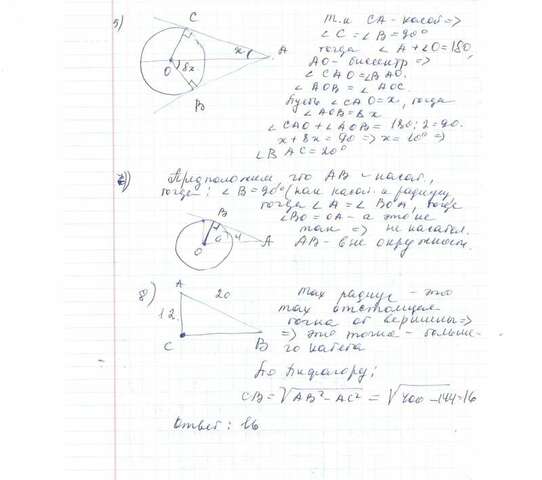 5)
C
x
A
O
8x
B
Т.к CA - касат =>
∠C = ∠B = 90°
тогда ∠A + ∠O = 180,
AO - биссектр =>
∠CAO = ∠BAO.
∠AOB = ∠AOC.
Пусть ∠CAO = x, тогда
∠AOB = 8x
∠CAO + ∠AOB = 180 : 2 = 90.
x + 8x = 90 => x = 10° =>
∠BAC = 20°
Предположим что AB - касат.,
тогда: ∠B = 90° (как касат. и радиус)
тогда ∠A = ∠BOA, тогда
∠BO = OA - а это не
так => не касател.
AB - вне окружности.
B
4
A
O
8)
A
20
12
C
B
max радиус - это
max отстоящая
точка от вершины =>
=> это точка - больше-
го катета
По Пифагору:
CB = √AB² - AC² = √400 - 144 = 16
Ответ: 16